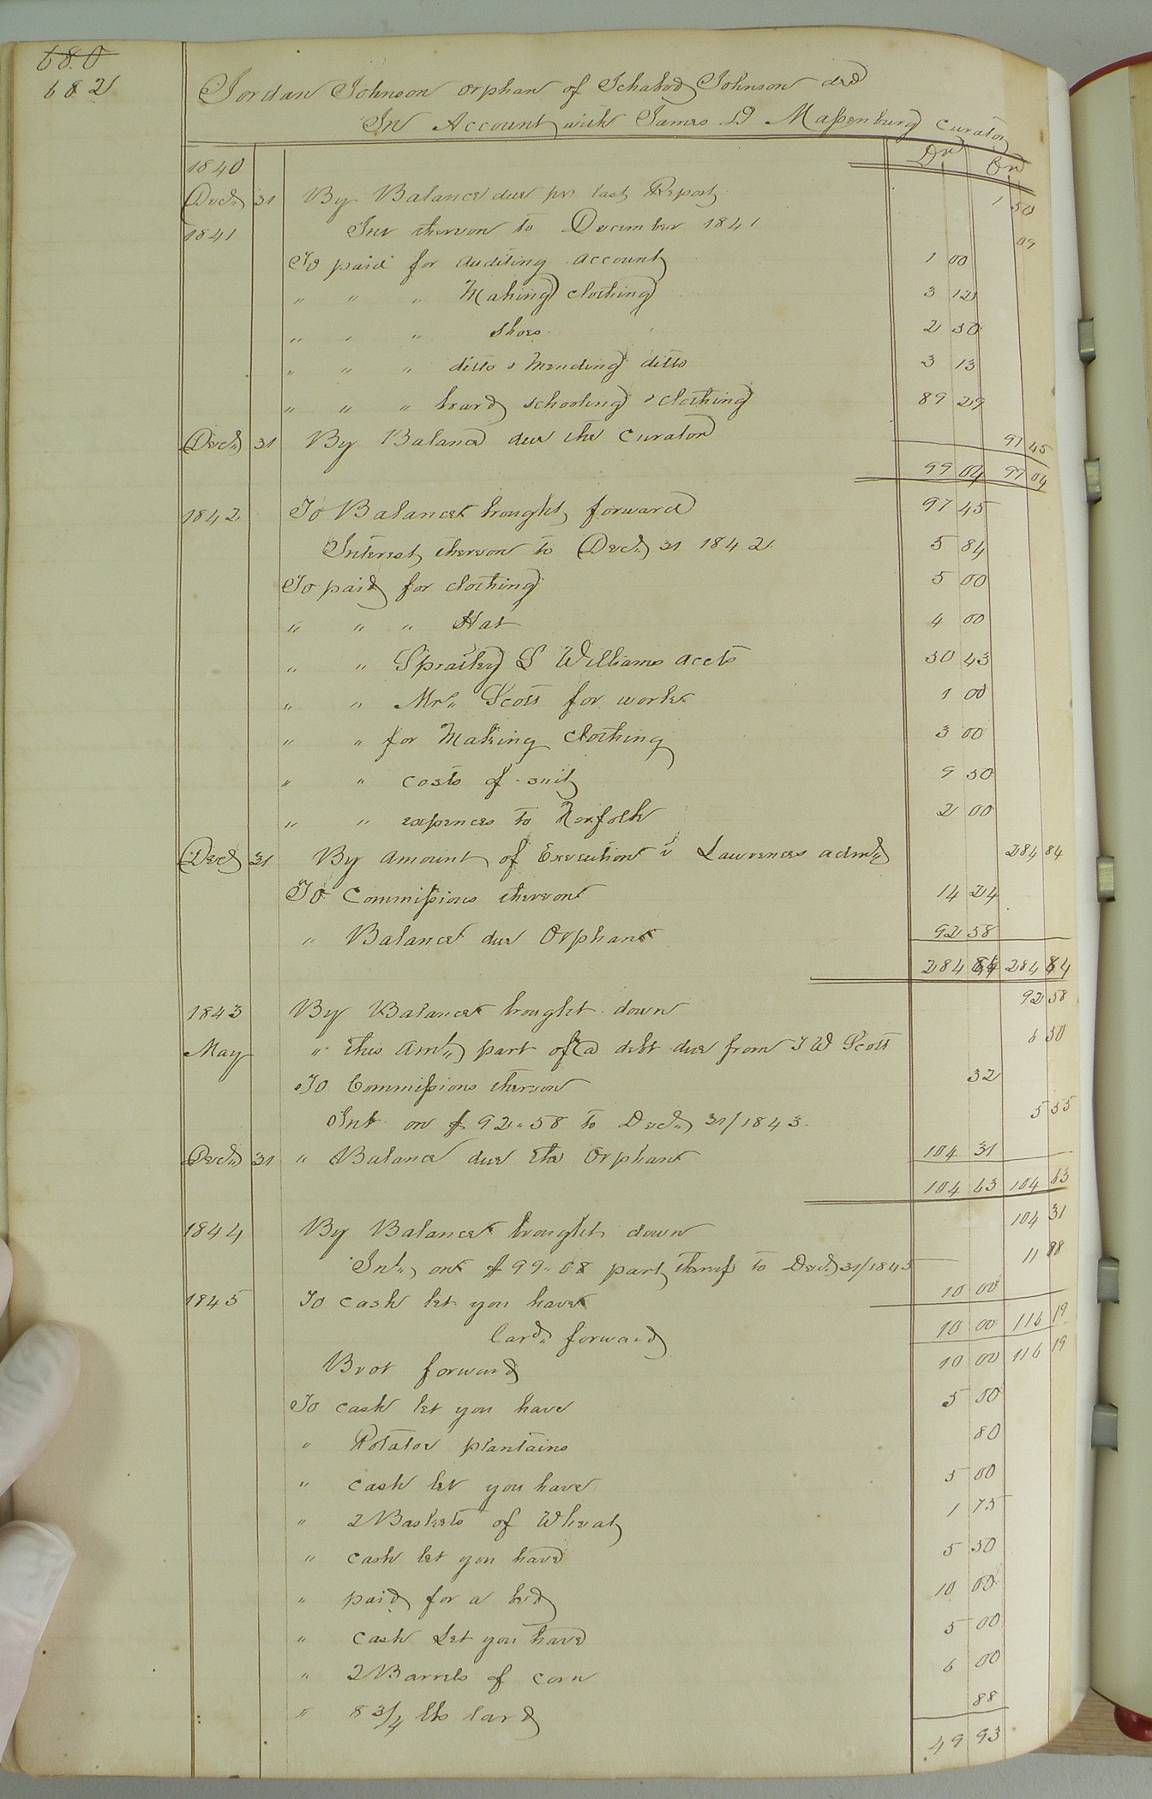 680
682
Jordan Johnson orphan of Ichabod Johnson decd
In Account with James D Massenburg curator
Dr Cr
1840
Decr 31 By Balance due pr last Report 1 50
1841 Int thereon to December 1841 09
To paid for auditing account 1 00
" " " Making clothing 3 12
" " " shoes 2 50
" " " ditto & Mending ditto 3 13
" " " board schooling & clothing 89 29
Decr 31 By Balance due the curator 97 45
99 04 99 04
1842 To Balance brought forward 97 45
Interest thereon to Decr 31 1842 5 84
To paid for clothing 5 00
" " " Hat 4 00
" " Spratley & Williams accts 50 43
" " Mrs Scott for work 1 00
" " for Making clothing 3 00
" " costs of suit 9 50
" " expences to Norfolk 2 00
Decr 31 By amount of Execution vs Lawrences admr 284 84
To Commissions thereon 14 24
" Balance due Orphan 92 58
284 84 284 84
1843 By Balance brought down 92 58
May " this Amt part of a debt due from J W Scott 6 50
To Commissions thereon 32
Int on $92.58 to Decr 31/1843 5 55
Decr 31 " Balance due the Orphan 104 31
104 63 104 63
1844 By Balance brought down 104 31
Int on $99.08 part thereof to Decr 31/1845 11 88
1845 To cash let you have 10 00
Card forward 10 00 116 19
Brot forward 10 00 116 19
To cash let you have 5 00
" Potatoe plantains 80
" cash let you have 5 00
" 2 Baskets of Wheat 1 75
" cash let you have 5 50
" paid for a bed 10 00
" cash Let you have 5 00
" 2 Barrels of corn 6 00
" 8 3/4 lbs lard 88
49 93